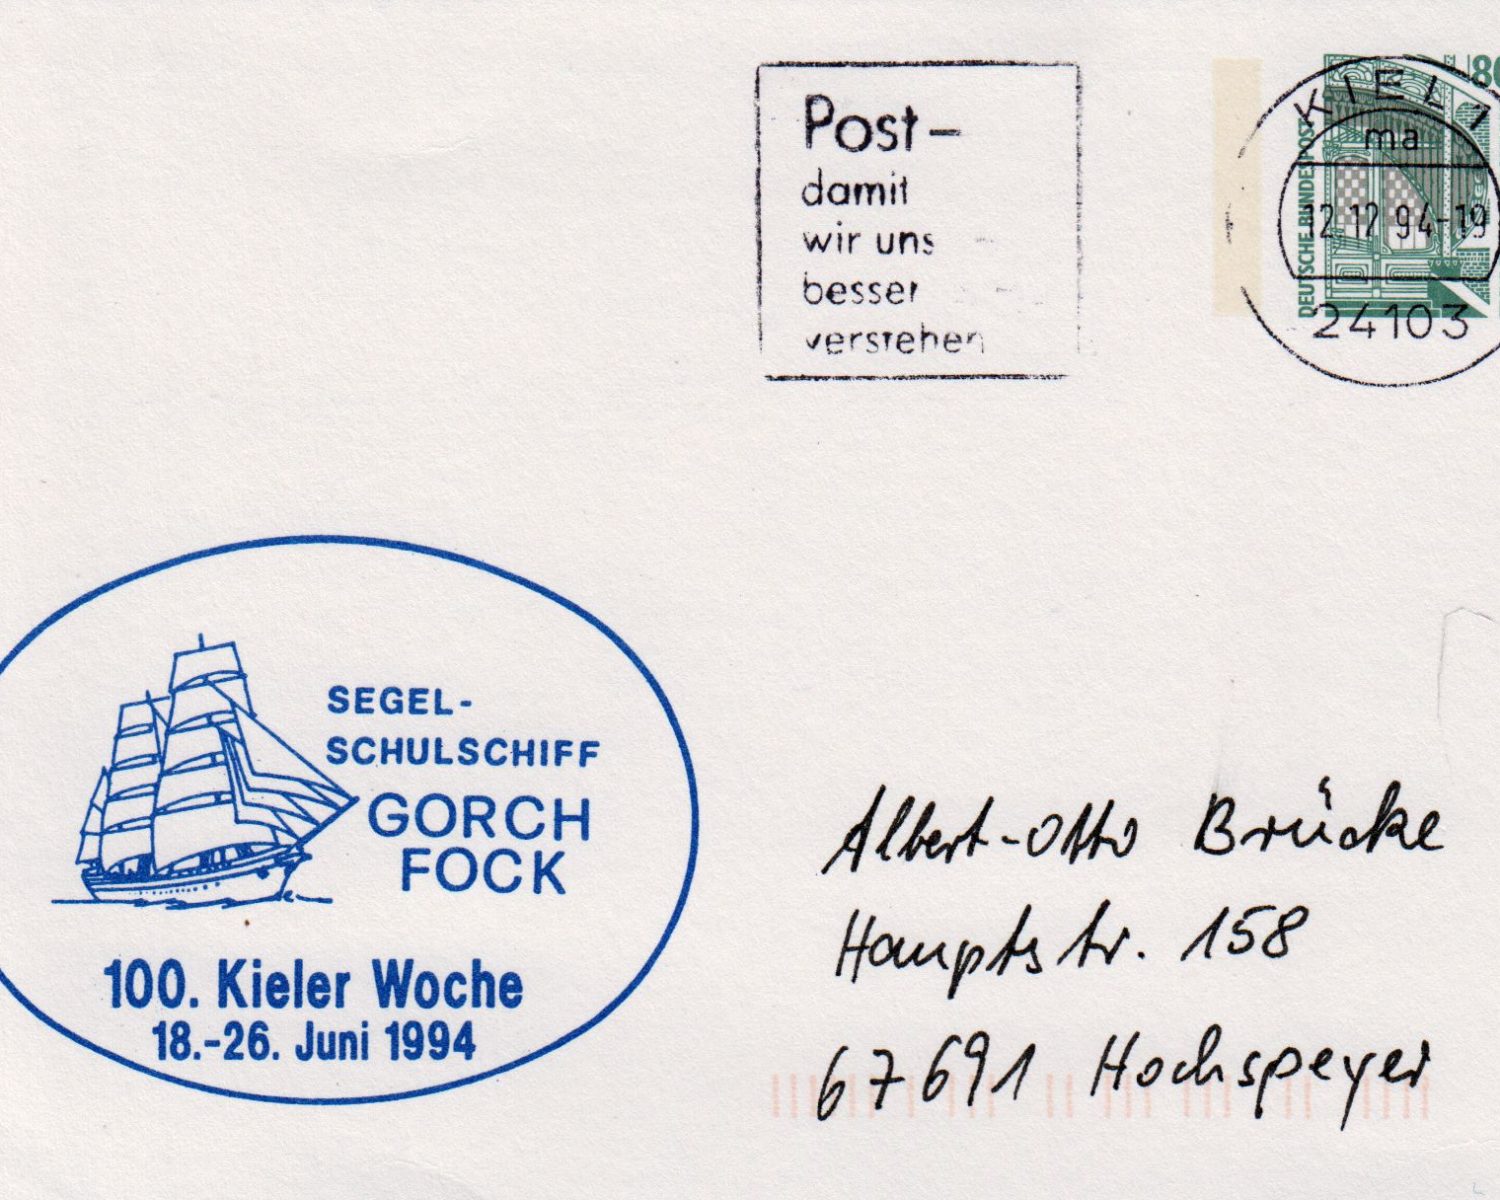 Post-
damit
wir uns
besser
verstehen
80
DEUTSCHE BUNDESPOST
KIEL 1
ma
12.12.94-19
24103
SEGEL-
SCHULSCHIFF
GORCH
FOCK
100. Kieler Woche
18.-26. Juni 1994
Albert-Otto Brücke
Hauptstr. 158
67691 Hochspeyer